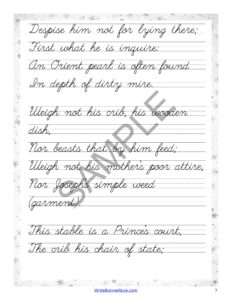 Despise him not for lying there;
First what he is inquire:
An Orient pearl is often found
In depth of dirty mire.
Weigh not his crib, his wooden
dish,
Nor beasts that by him feed;
Weigh not his mother's poor attire,
Nor Joseph's simple weed
(garment).
This stable is a Prince's court,
The crib his chair of state;
SAMPLE
WriteBonnieRose.com